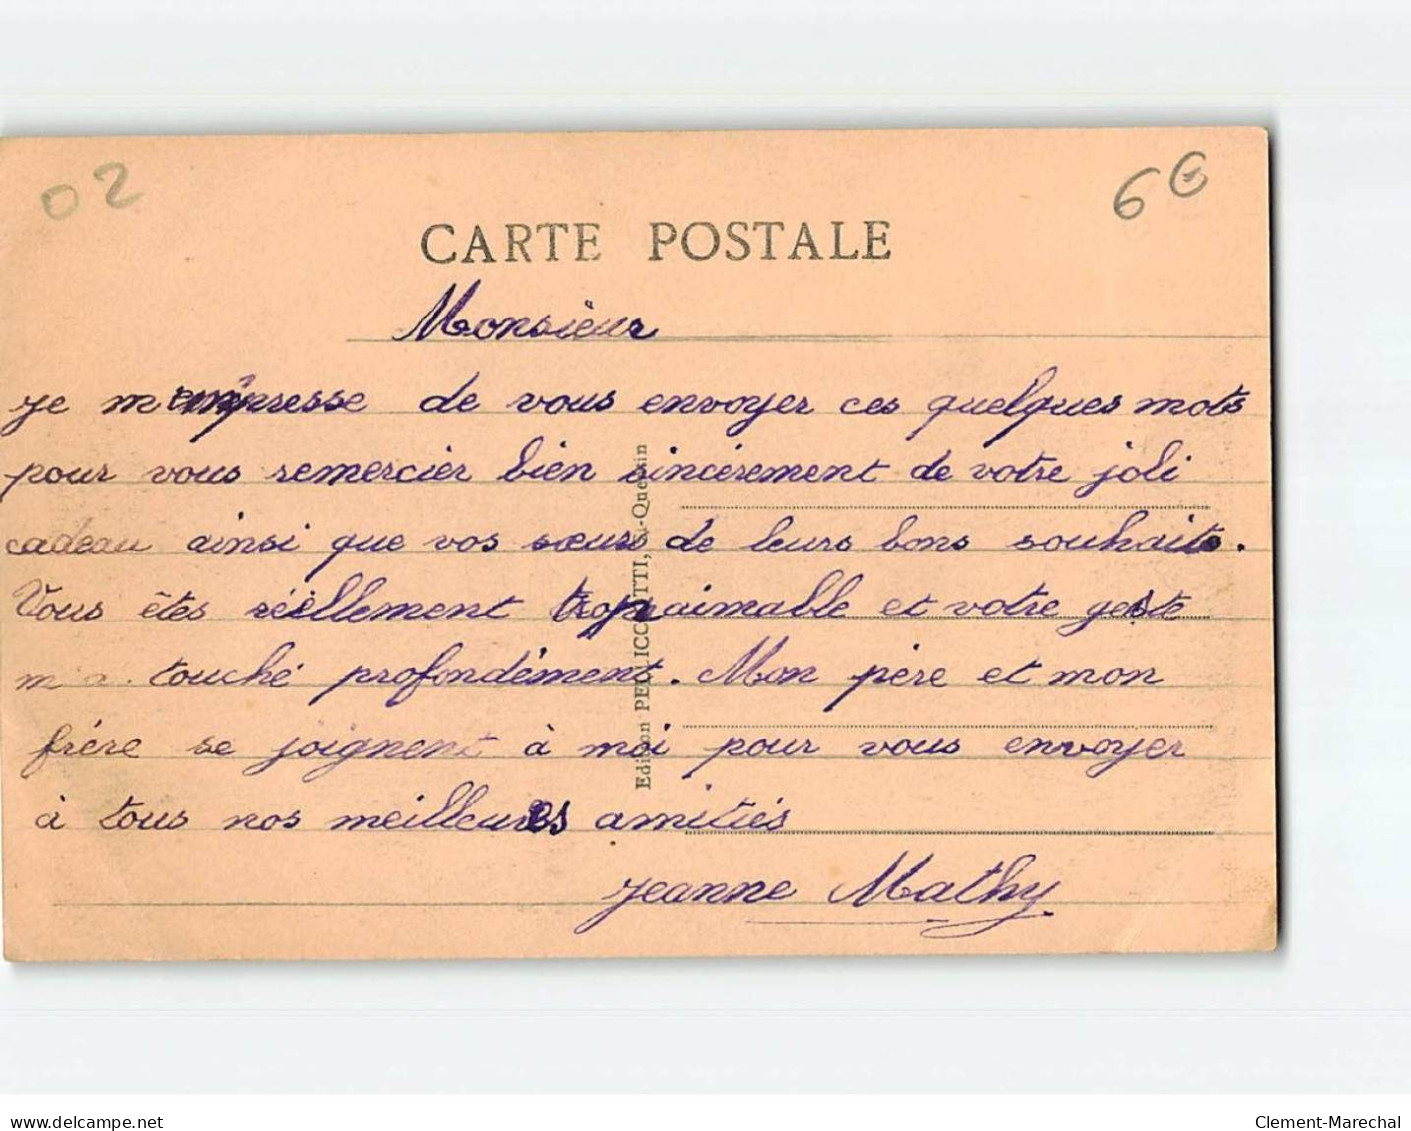 02
6€
CARTE POSTALE
Monsieur
je m'empresse de vous envoyer ces quelques mots
pour vous remercier bien sincèrement de votre joli
cadeau ainsi que vos sœurs de leurs bons souhaits.
Vous êtes réellement trop aimable et votre geste
m'a touché profondément. Mon père et mon
frère se joignent à moi pour vous envoyer
à tous nos meilleures amitiés
Jeanne Mathy
Edition PELLICCIOTTI, St-Quentin
delcampe.net
Clement-Marechal